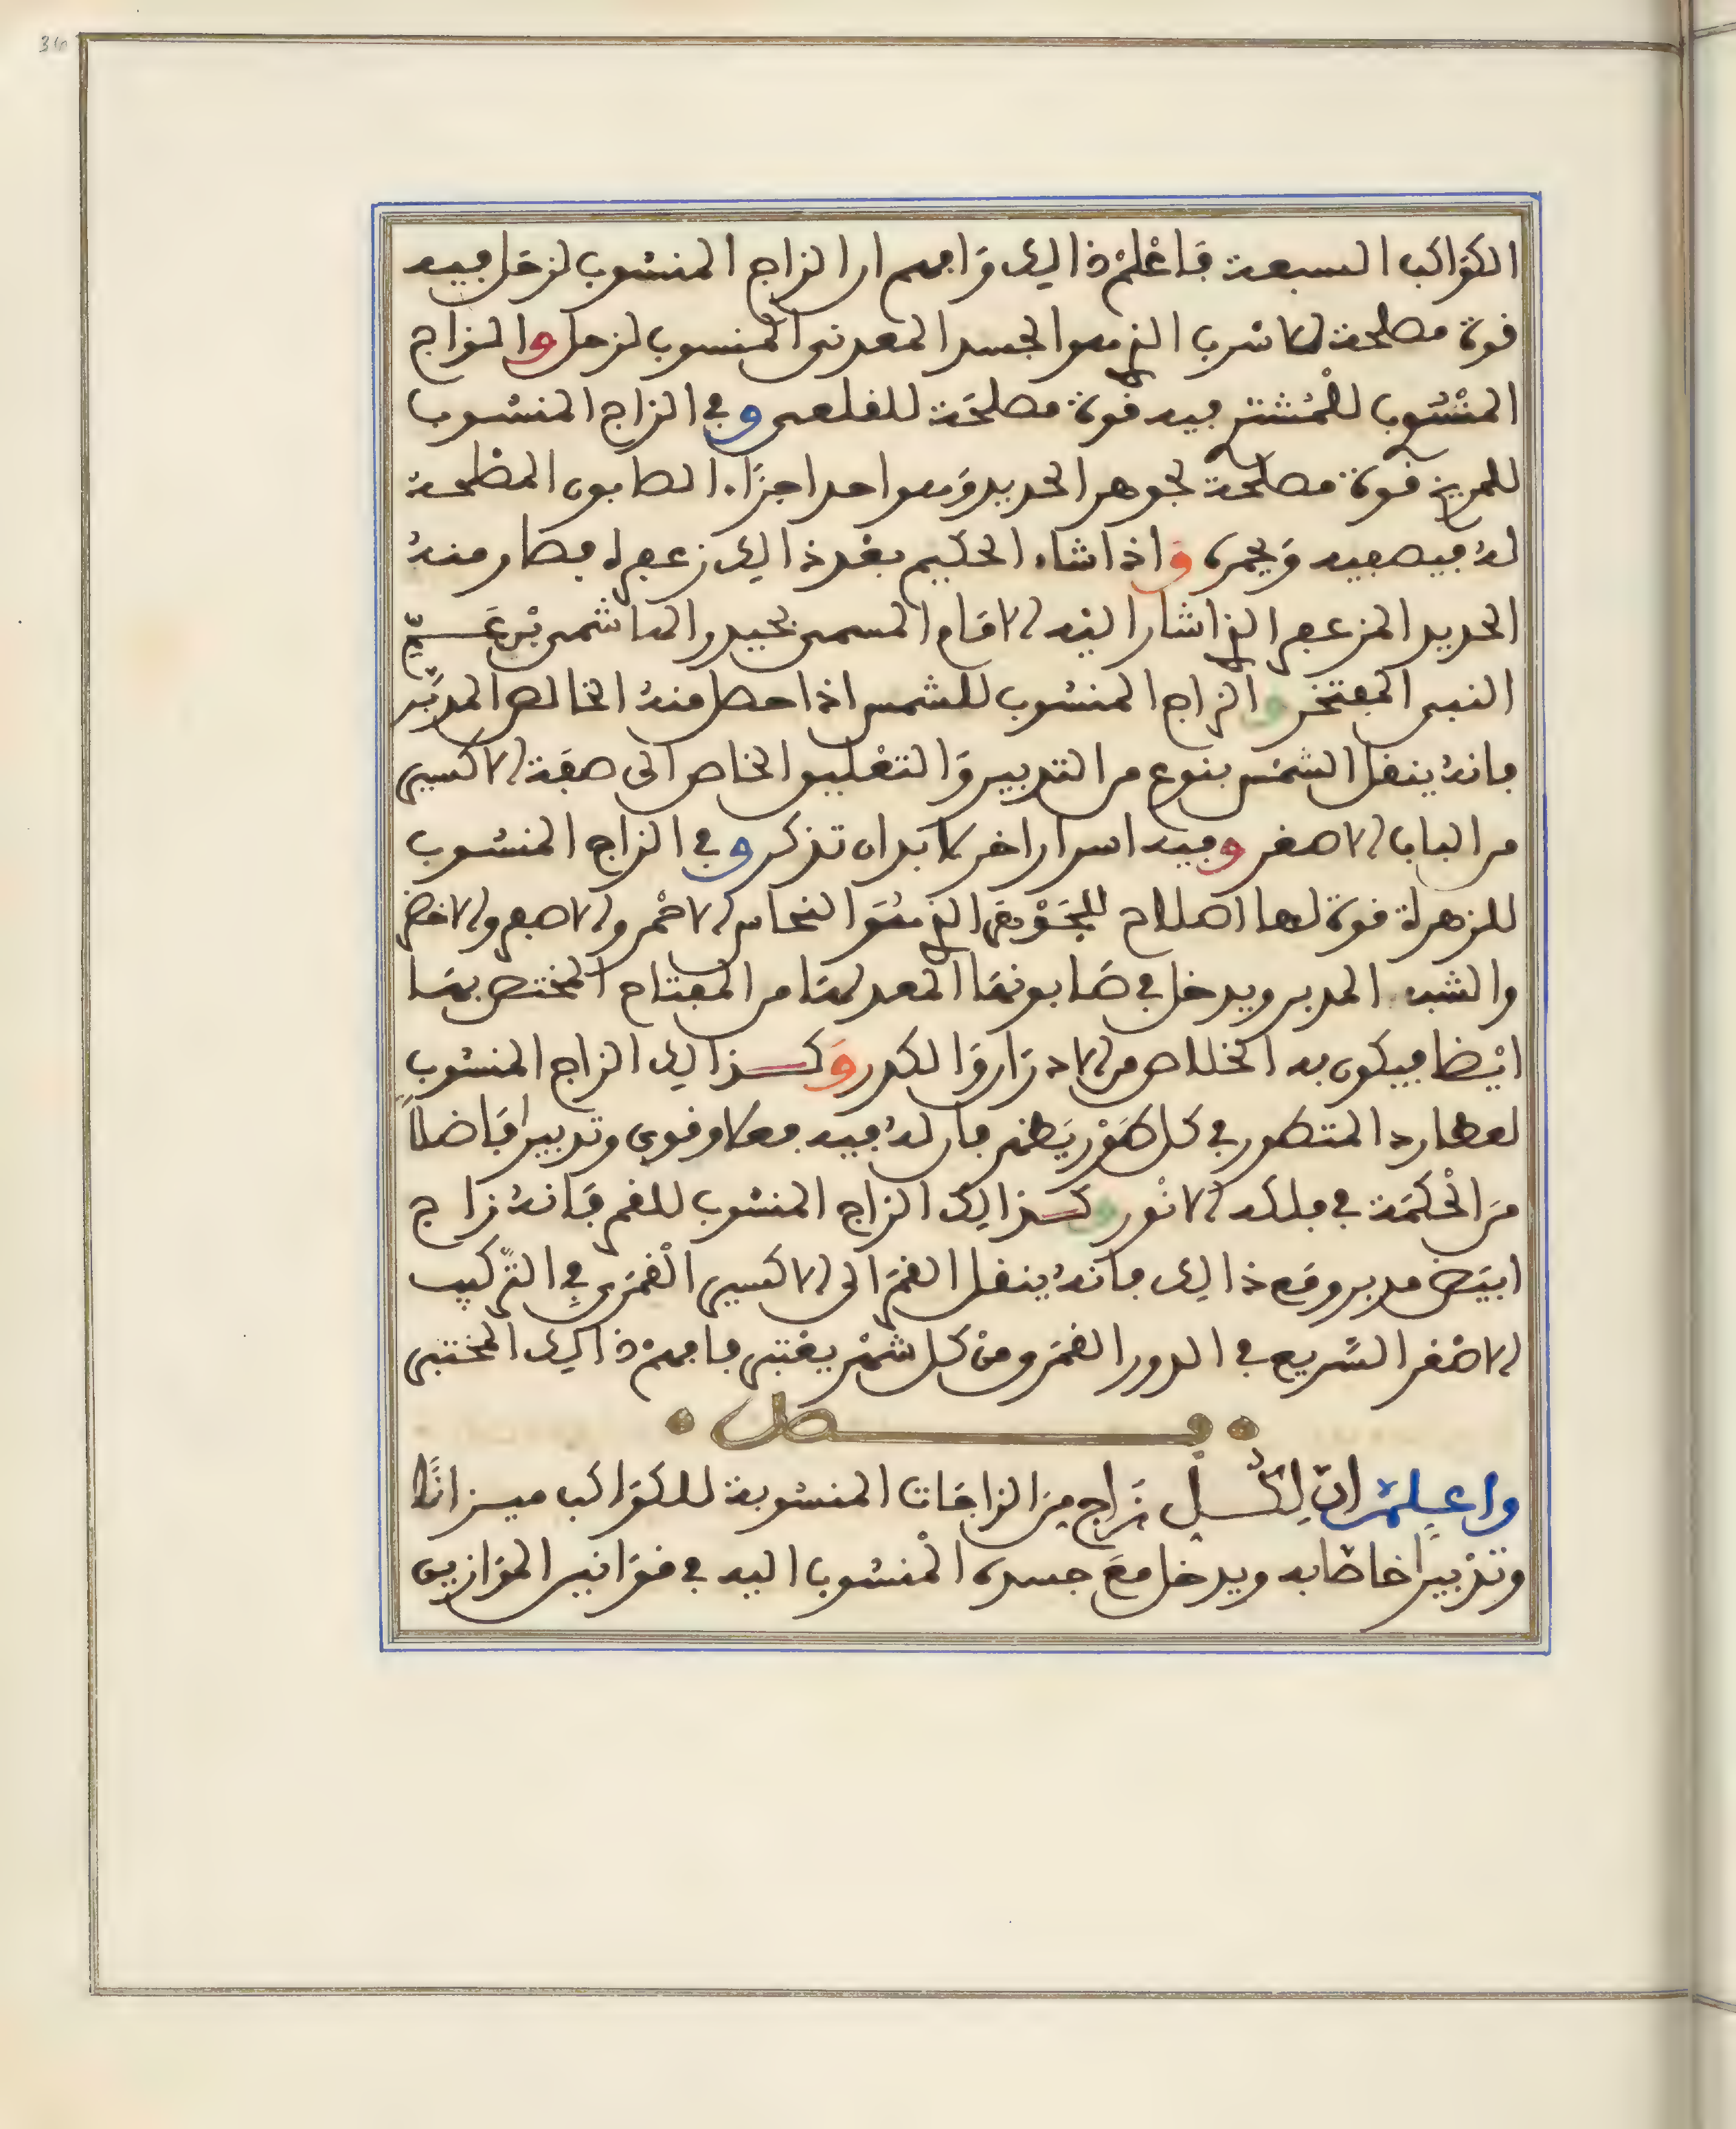 الكواكب السبعة فاعلم ذالك وافهم ان الزاج المنسوب لزحل فيه
قوة مصلحة للاسرب الذي هو الجسد المعدني المنسوب لزحل والزاج
المنسوب للمشتري فيه قوة مصلحة للقلعي وفي الزاج المنسوب
للمريخ قوة مصلحة لجوهر الحديد وهو احد اجزاء الصابون المصلحة
له فيصفيه ويحمره واذا شاء الحكيم بعد ذالك زعفره فصار منه
الحديد المزعفر الذي اشار اليه الامام المسمى بحيدر الهاشمي بن عم
النبي المفتخر والزاج المنسوب للشمس اذا حصل منه الخالص المدبر
فانه ينقل الشمس بنوع من التدبير والتغليب الخاص الى صفة الاكسير
من الباب الاصغر وفيه اسرار اخر لا بد ان تذكر وفي الزاج المنسوب
للزهراة قوة لها اصلاح للجوهر الذي هو النحاس الاحمر والاصفر والاخضر
والشبه المدبر ويدخل في صابونها المعد لها من المفتاح المختص بها
ايضا فيكون به الخلاص من الادران والكدر وكذالك الزاج المنسوب
لعطارد المتطور في كل طور يظهر فان له فيه فعلا وقوى وتدبيرا فاضلا
من الحكمة في فلكه الانور وكذالك الزاج المنسوب للقمر فانه زاج
ابيض مدبر ومع ذالك فانه ينقل القمر الى الاكسير القمري في التركيب
الاصغر السريع في الدور القمر ومن كل شهر يعتبر فافهم ذالك المختبر
فصل
واعلم ان لكل زاج من الزاجات المنسوبة للكواكب ميزانا
وتدبيرا خاصا به ويدخل مع جسده المنسوب اليه في قوانين الموازين